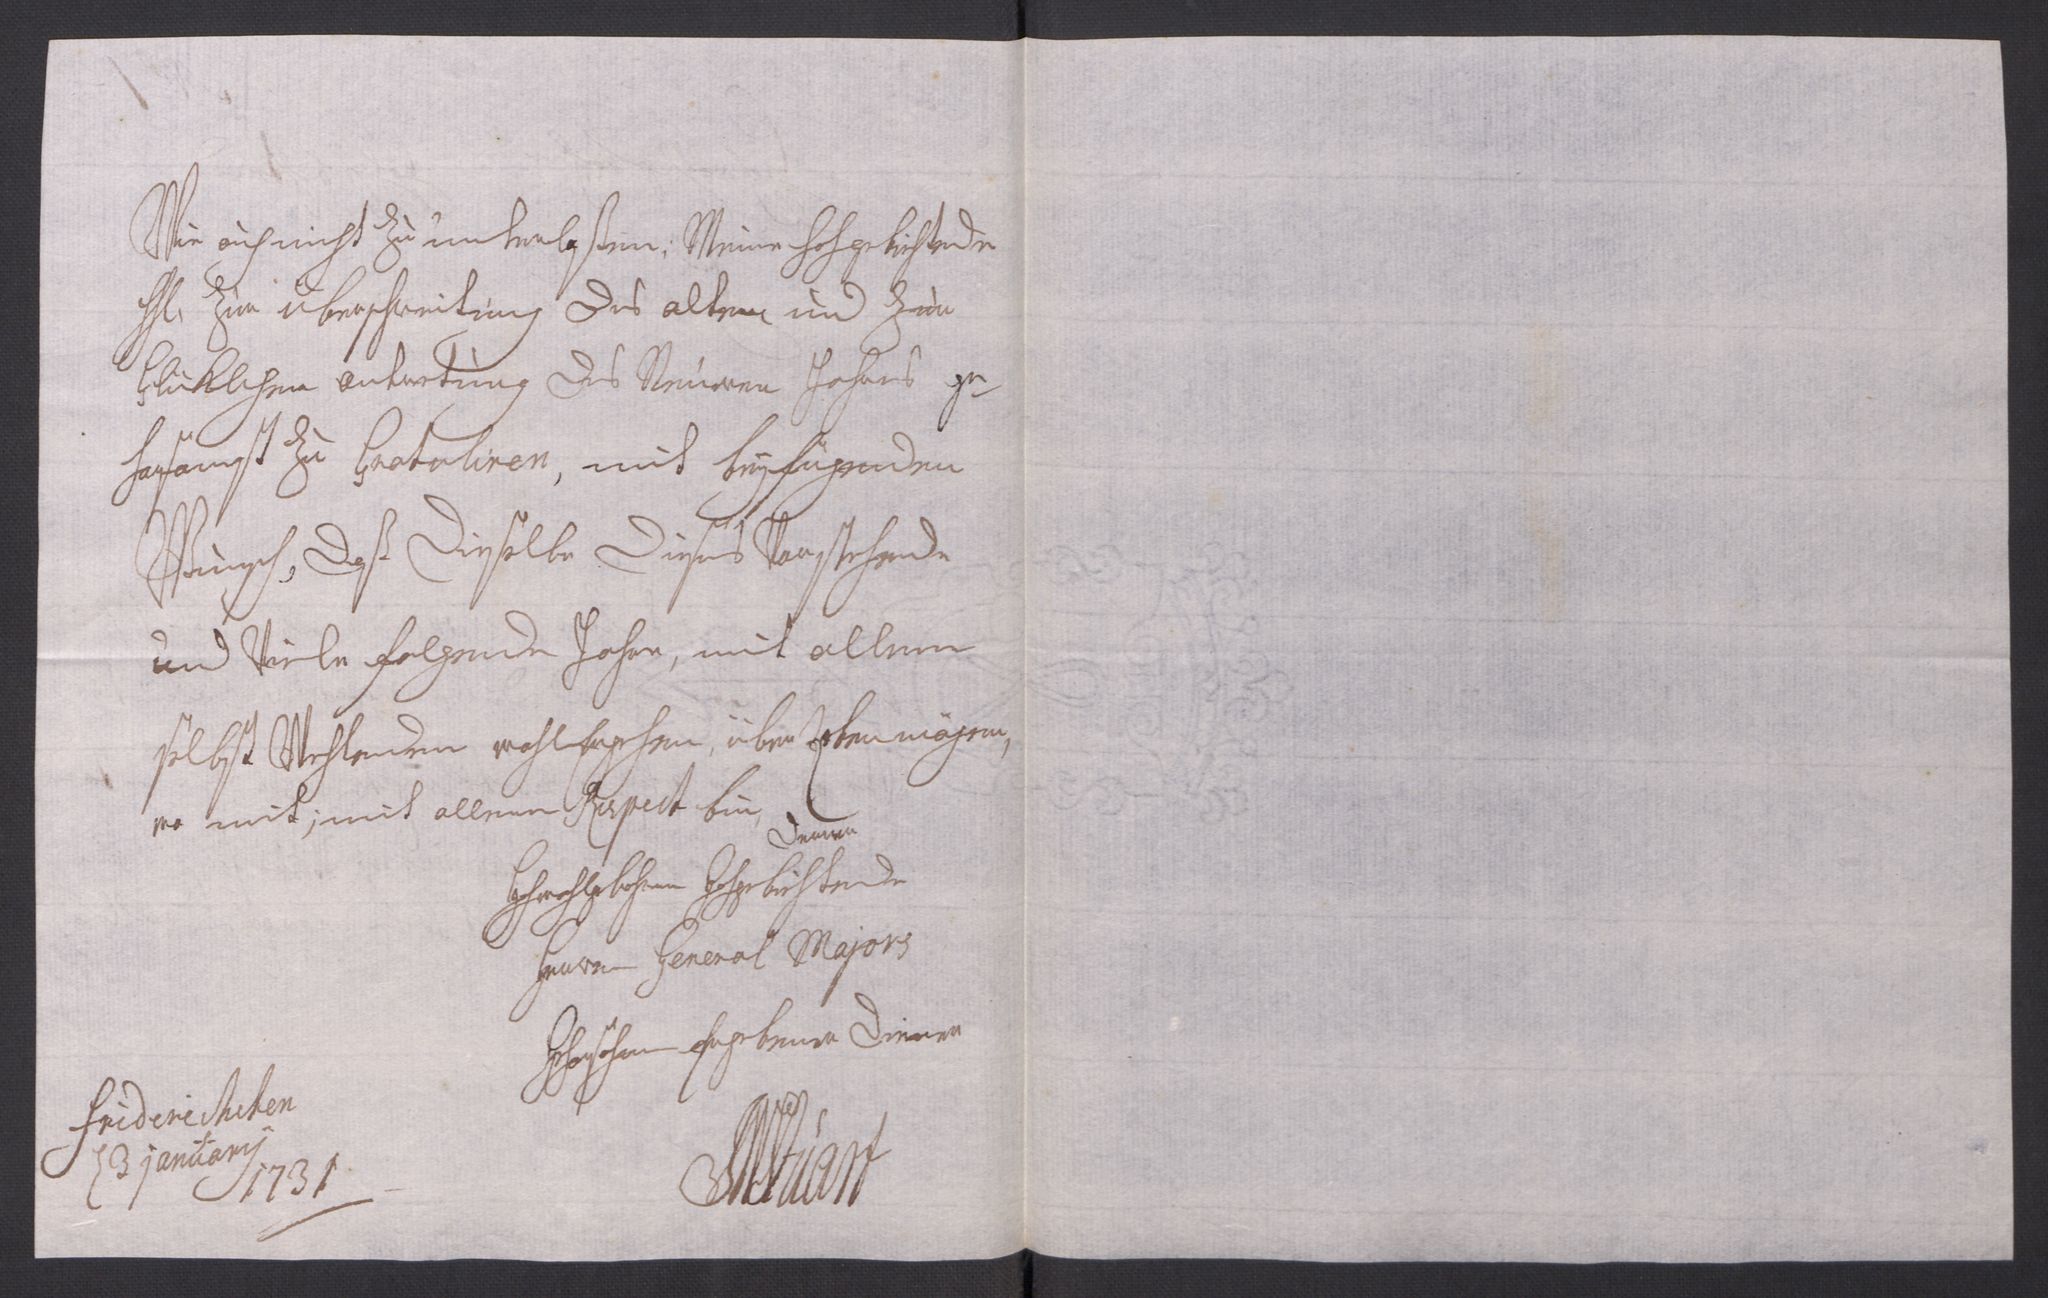 Wie auch nicht zu unterlaßen, Meine hochgebiethende
HH. zur überschreitung des alten und zur
Glücklichen antretung des Neuwen Jahres ge-
horsamst zu Gratuliren, mit beyfügenden
Wunsch, daß Dieselbe Dieses Vorstehende
und Viele folgende Jahre, mit allem
selbst Wehlenden wohlergehen, überleben mögen,
wo mit, mit allem Respect bin,
Deroer
Hochwohlgebohrnen Hochgebiethende
Herren General Majors
Gehorsahm Ergebener Diener
Stuart
Friderichsten
d 3 january
1731